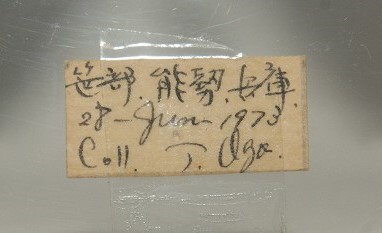 笹部. 能勢. 兵庫.
28-Jun-1973
Coll. T. Oga.